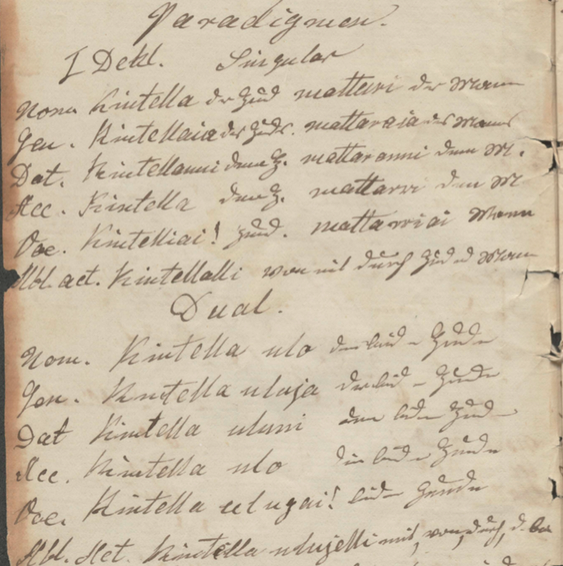 Paradigmen.
I Dekl. Singular
Nom Kintella der Hund mattari der Mann
Gen. Kintellaia des Hunds. mattaraia des Manns
Dat. Kintellanni dem H. mattaranni dem M.
Acc. Kintella den H. mattarri den M
Voc. Kintelliai! Hund. mattarriai Mann
Abl. act. Kintellalli von mit durch Hund Mann
Dual.
Nom. Kintella ulo die beiden Hunde
Gen. Kintella uluja der beiden Hunde
Dat Kintella uluni den beiden Hunden
Acc. Kintella ulo die beiden Hunde
Voc. Kintella ulugai! beiden Hunde
Abl. Act. Kintella ulujelli mit, von, durch,